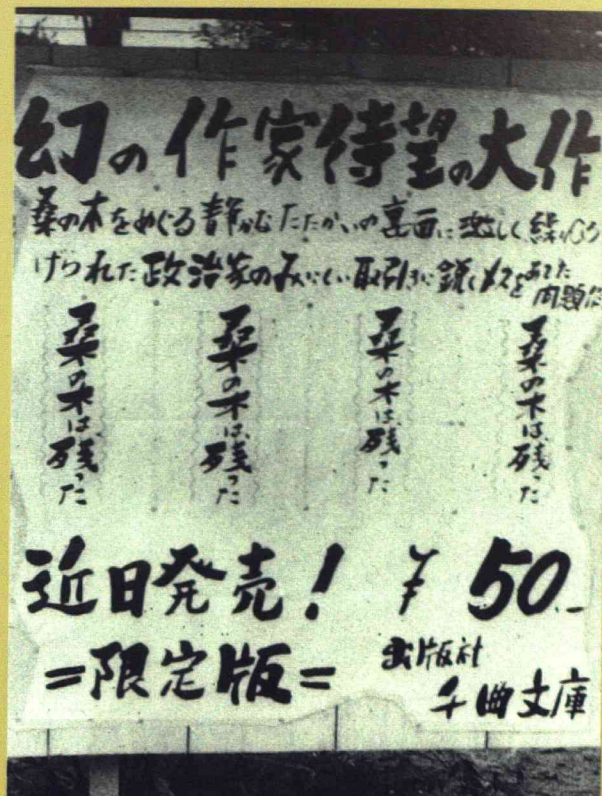 幻の作家待望の大作
桑の木をめぐる静かなたたかいの裏面に激しく繰りひろ
げられた政治家のみにくい取引きに鋭くメスをあてた
問題作
桑の木は残った
桑の木は残った
桑の木は残った
桑の木は残った
近日発売! ¥50.-
=限定版=
出版社
千曲文庫